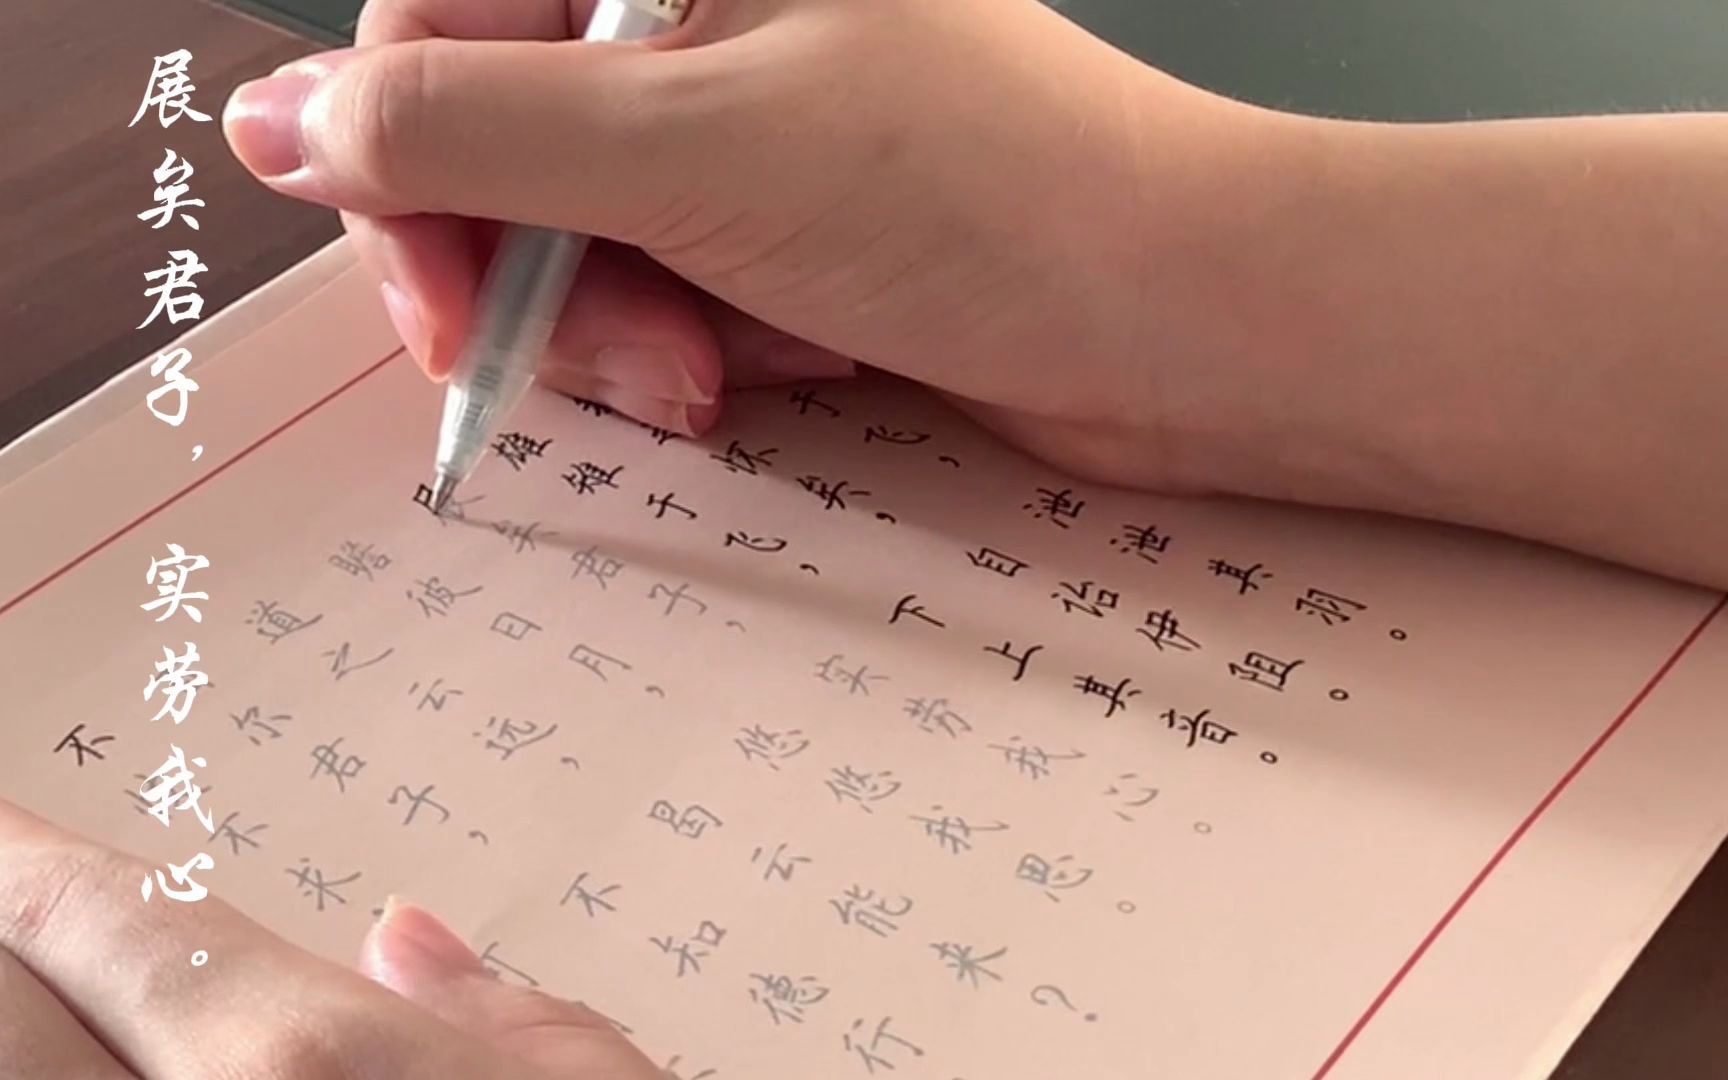 展矣君子，实劳我心。
于飞，泄泄其羽。
怀矣，自诒伊阻。
雄雉于飞，下上其音。
展矣君子，实劳我心。
瞻彼日月，悠悠我思。
道之云远，曷云能来？
尔君子，不知德行
不不求，